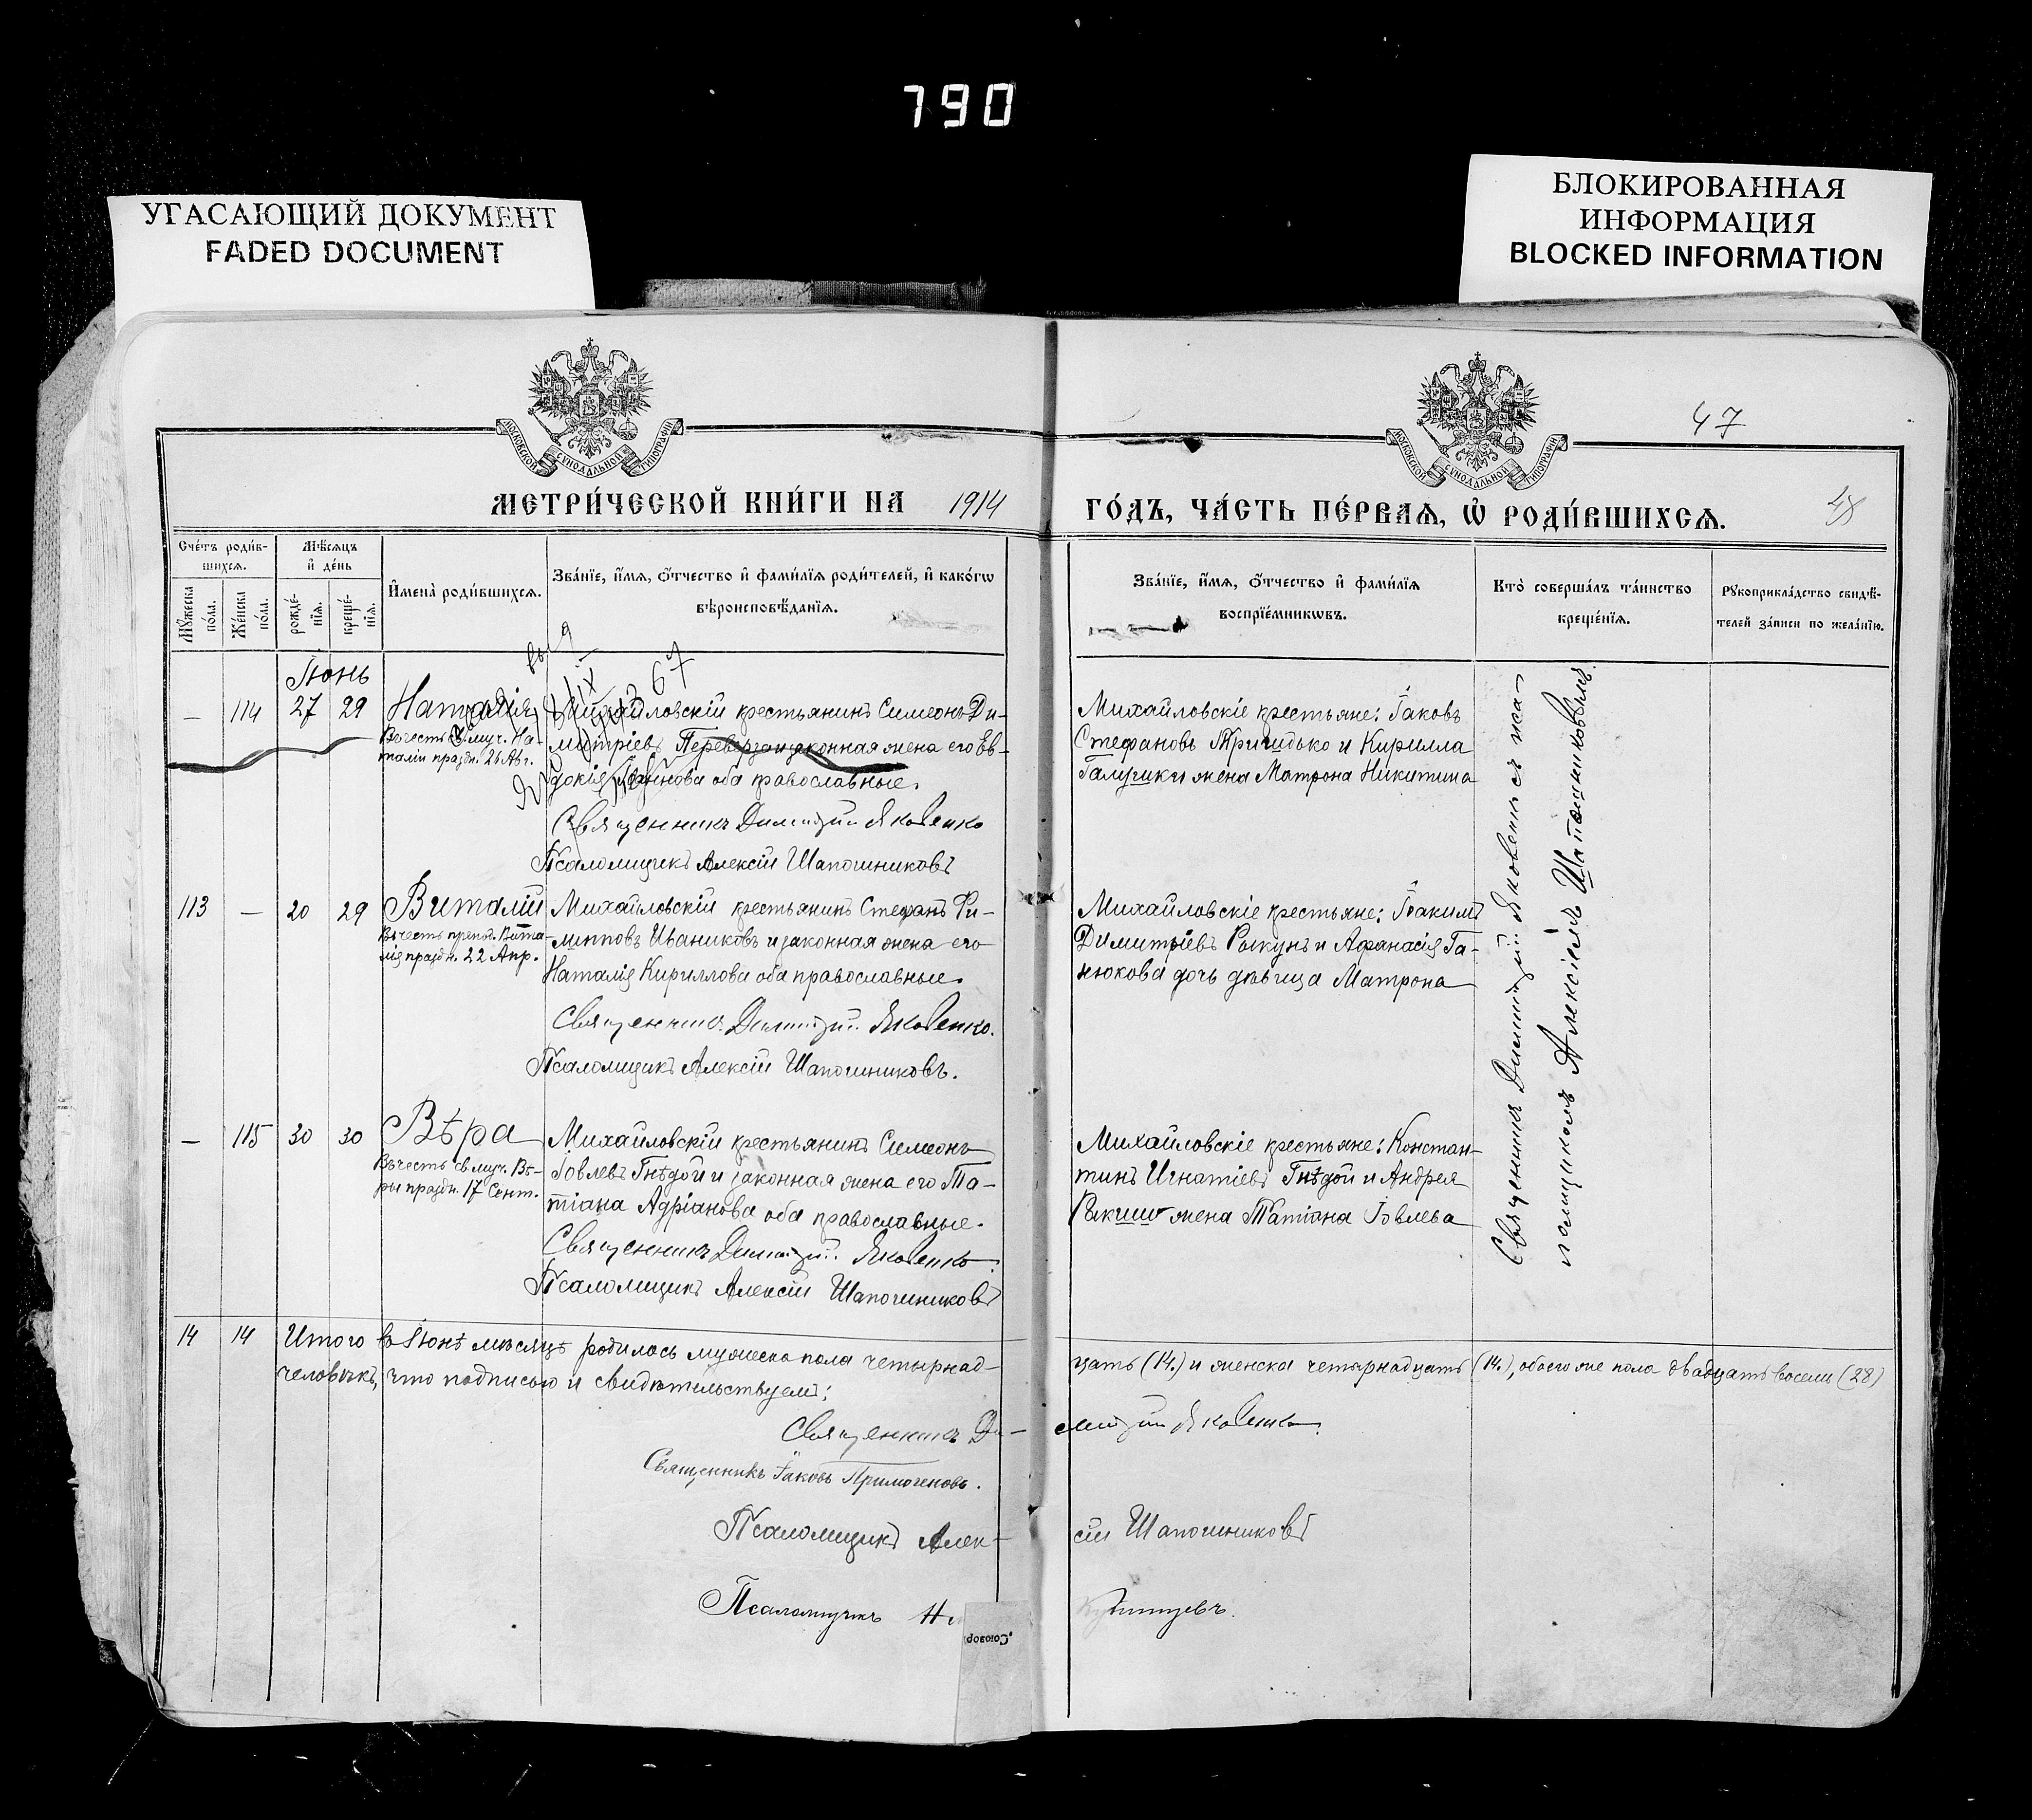 790
УГАСАЮЩИЙ ДОКУМЕНТ
FADED DOCUMENT
БЛОКИРОВАННАЯ
ИНФОРМАЦИЯ
BLOCKED INFORMATION
МОСКОВСКОЙ СУНОДАЛЬНОЙ ТИПОГРАФІИ
МОСКОВСКОЙ СУНОДАЛЬНОЙ ТИПОГРАФІИ
47
МЕТРИ́ЧЕСКОЙ КНИ́ГИ НА 1914
ГО́ДЪ, ЧА́СТЬ ПЕ́РВАѦ, Ѡ҆ РОДИ́ВШИХСѦ.
Сче́тъ роди́в-
шихсѧ.
Мꙋ́жеска по́ла.
Же́нска по́ла.
Мѣ́сѧцъ
и҆ де́нь
рожде́-
нїѧ.
креще́-
нїѧ.
И҆мена̀ роди́вшихсѧ.
Зва́нїе, и҆́мѧ, ѻ҆́тчество и҆ фами́лїѧ роди́телей, и҆ како́гѡ
вѣроисповѣ́данїѧ.
Зва́нїе, и҆́мѧ, ѻ҆́тчество и҆ фами́лїѧ
воспрїе́мникѡвъ.
Кто̀ соверша́лъ та́инство
креще́нїѧ.
Рꙋкоприкла́дство свидѣ́-
телей за́писи по жела́нїю.
Іюнь
— 114 27 29 Наталія
Въ честь св. муч. На-
таліи праздн. 26 Авг.
Михайловскій крестьянинъ Симеонъ Ди-
митріевъ Переверза и законная жена его Ев-
докія оба православные.
Священникъ Димитрій Яковенко
Псаломщикъ Алексій Шапошниковъ
Михайловскіе крестьяне: Іаковъ
Стефановъ Гришко и Кирилла
Галушки жена Матрона Никитина
113 — 20 29 Виталій
Въ честь препод. Вита-
лія праздн. 22 Апр.
Михайловскій крестьянинъ Стефанъ Фи-
липповъ Иваниковъ и законная жена его
Наталія Кириллова оба православные.
Священникъ Димитрій Яковенко.
Псаломщикъ Алексій Шапошниковъ.
Михайловскіе крестьяне: Іоакимъ
Димитріевъ и Афанасія Га-
нюкова дочь дѣвица Матрона
— 115 30 30 Вѣра
Въ честь св. муч. Вѣ-
ры праздн. 17 Сент.
Михайловскій крестьянинъ Симеонъ
Іовлевъ Гнѣдой и законная жена его Та-
тіана Адріанова оба православные.
Священникъ Димитрій Яковенко
Псаломщикъ Алексій Шапошниковъ
Михайловскіе крестьяне: Констан-
тинъ Игнатіевъ Гнѣдой и Андрея
жена Татіана Іовлева
Священникъ Димитрій Яковенко съ пса-
ломщикомъ Алексіемъ Шапошниковымъ.
14 14 Итого въ Іюнѣ мѣсяцѣ родилось мужеска пола четырнад-
цать (14.) и женска четырнадцать (14.), обоего же пола двадцать восемь (28)
человѣкъ, что подписью и свидѣтельствуемъ:
Священникъ Ди-
митрій Яковенко.
Священникъ Іаковъ Примогеновъ.
Псаломщикъ Алек-
сій Шапошниковъ
Псаломщикъ